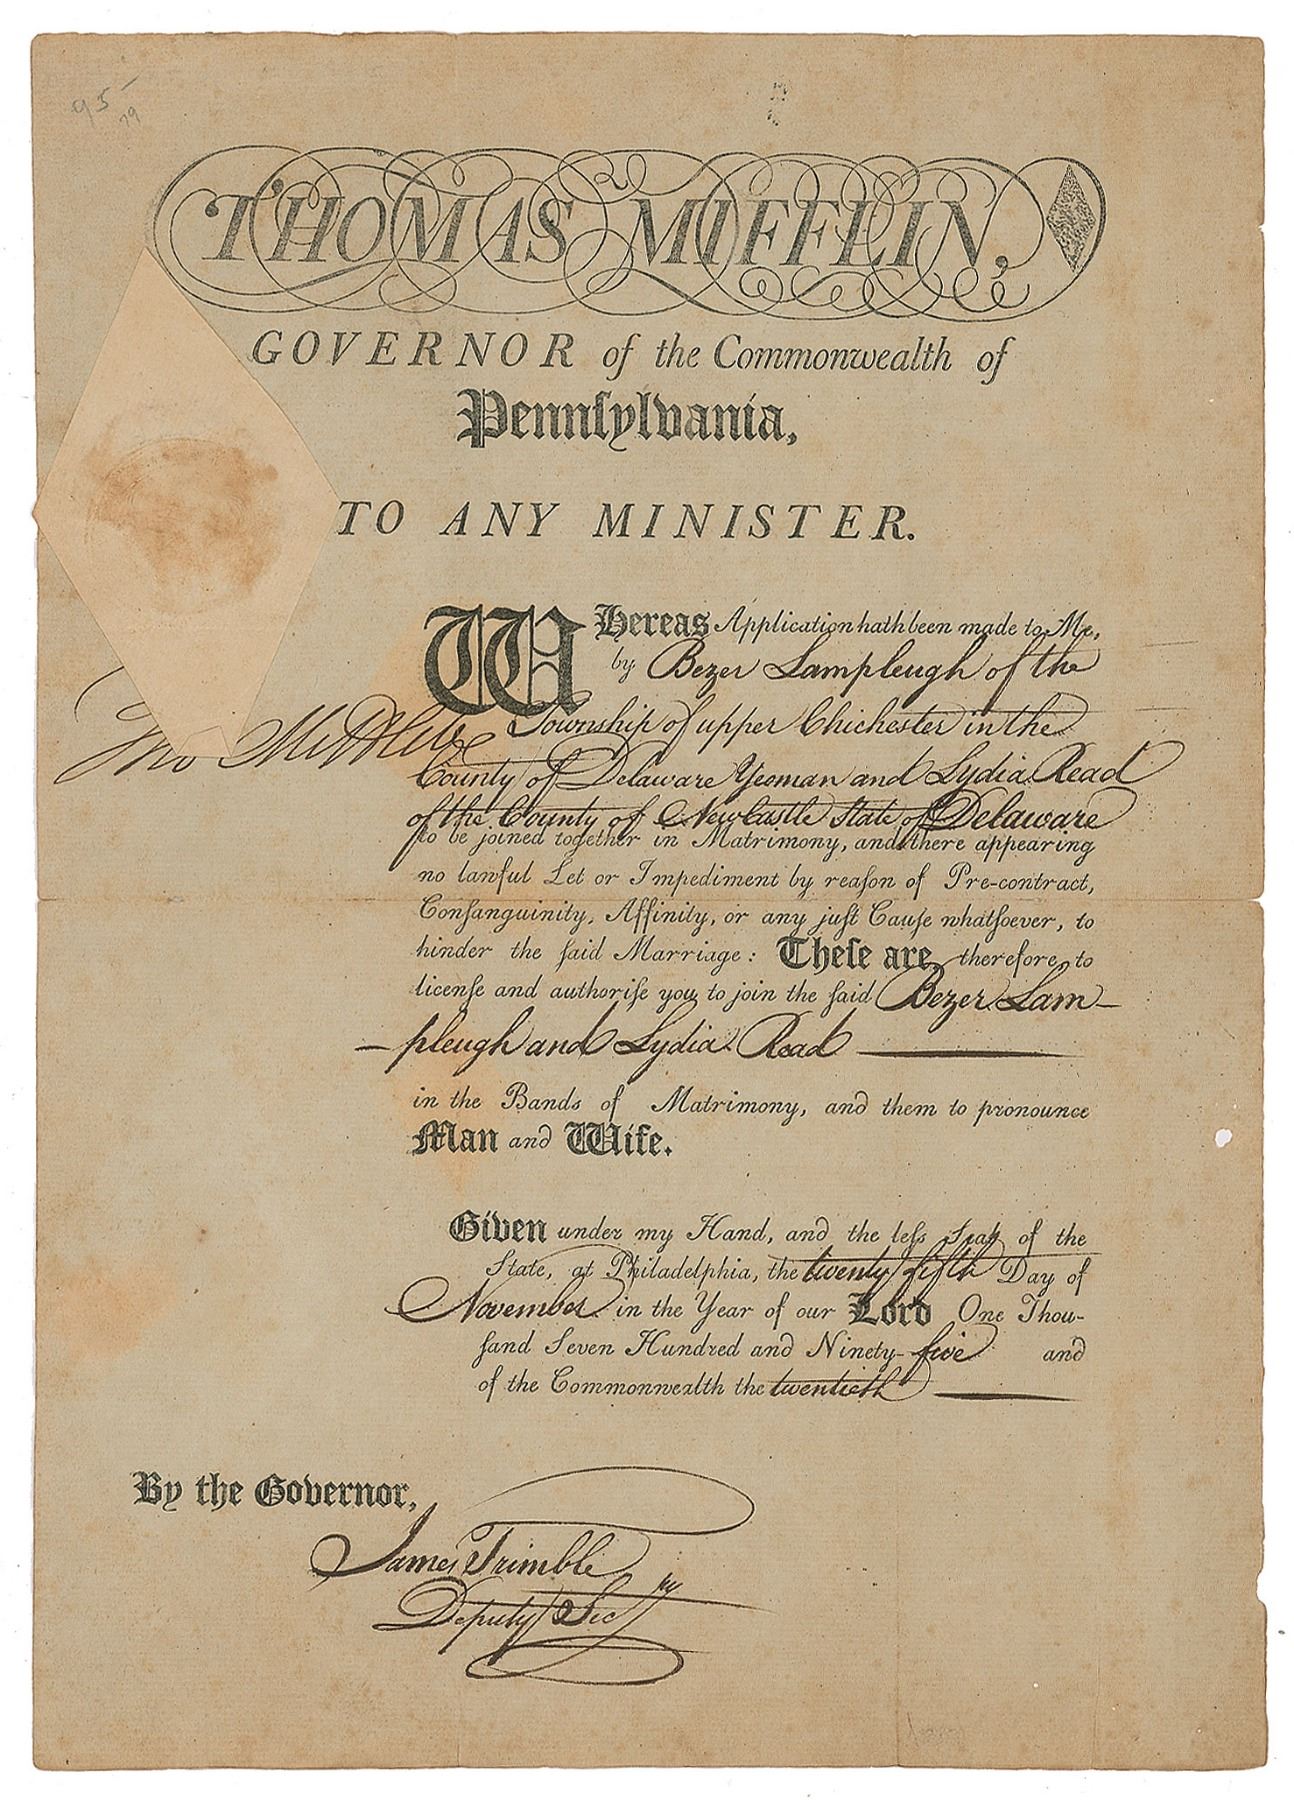 95
79
THOMAS MIFFLIN,
GOVERNOR of the Commonwealth of
Pennſylvania,
TO ANY MINISTER.
WHereas Application hath been made to Me,
by Bezer Lampleugh of the
Township of upper Chichester in the
Tho Mifflin
County of Delaware Yeoman and Lydia Read
of the County of NewCastle State of Delaware
to be joined together in Matrimony, and there appearing
no lawful Let or Impediment by reaſon of Pre-contract,
Conſanguinity, Affinity, or any juſt Cauſe whatſoever, to
hinder the ſaid Marriage: Theſe are, therefore, to
licenſe and authoriſe you to join the ſaid Bezer Lam-
-pleugh and Lydia Read
in the Bands of Matrimony, and them to pronounce
Man and Wife.
Given under my Hand, and the leſs Seal of the
State, at Philadelphia, the twenty fifth Day of
November in the Year of our Lord One Thou-
ſand Seven Hundred and Ninety-five and
of the Commonwealth the twentieth
By the Governor,
James Trimble
Deputy Secry